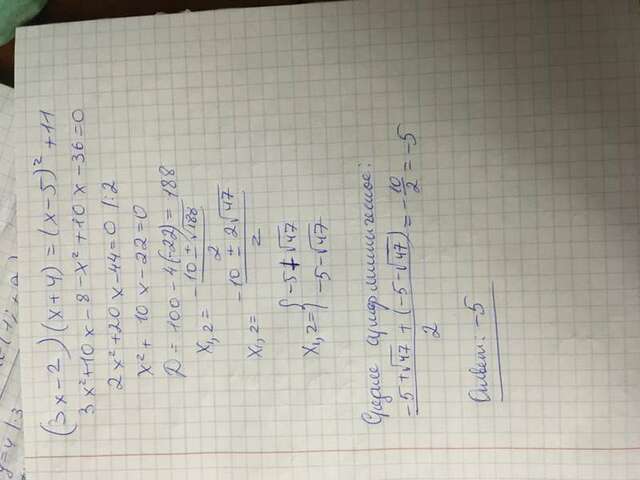 (3x-2)(x+4)=(x-5)²+11
3x²+10x-8-x²+10x-36=0
2x²+20x-44=0 |:2
x²+10x-22=0
D=100-4(-22)=188
x₁,₂= -10±√188 / 2
x₁,₂= -10±2√47 / 2
x₁,₂={ -5+√47
-5-√47
Среднее арифметическое:
-5+√47+(-5-√47) / 2 = -10/2 = -5
Ответ: -5
y=4 |:3